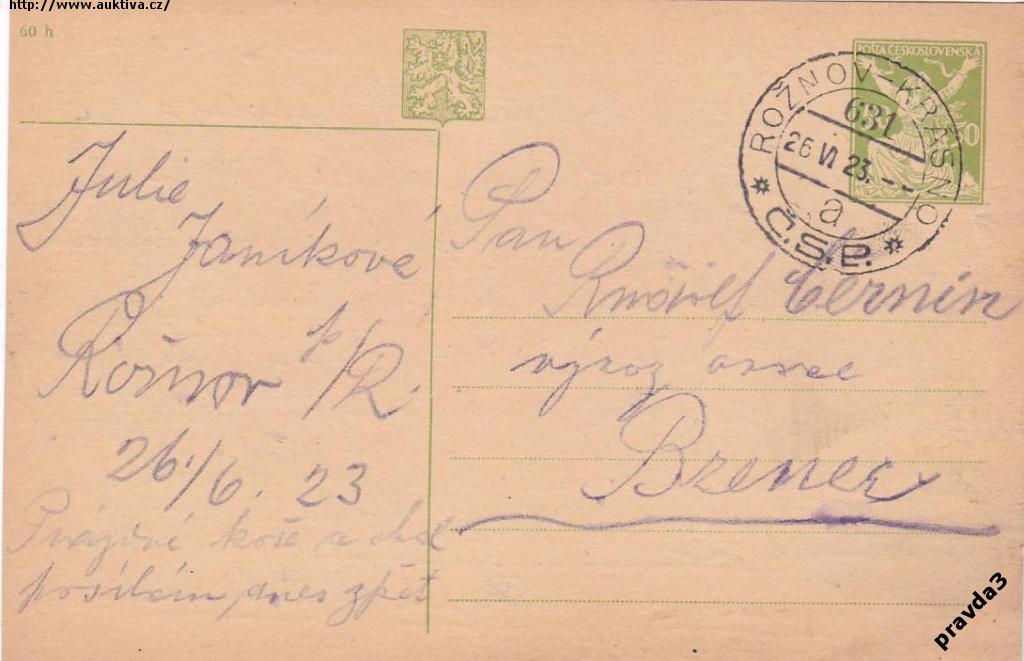 http://www.auktiva.cz/
60 h
POŠTA ČESKOSLOVENSKÁ
ROŽNOV-KRÁSNO
631
26 VI 23.--
a
* Č.S.P. *
Julie
Janíková
Rožnov p/R.
26./6. 23
Prázdné koše a
posílám dnes zpět
Pan
Rudolf Černín
vývoz ovoce
Bzenec
pravda3